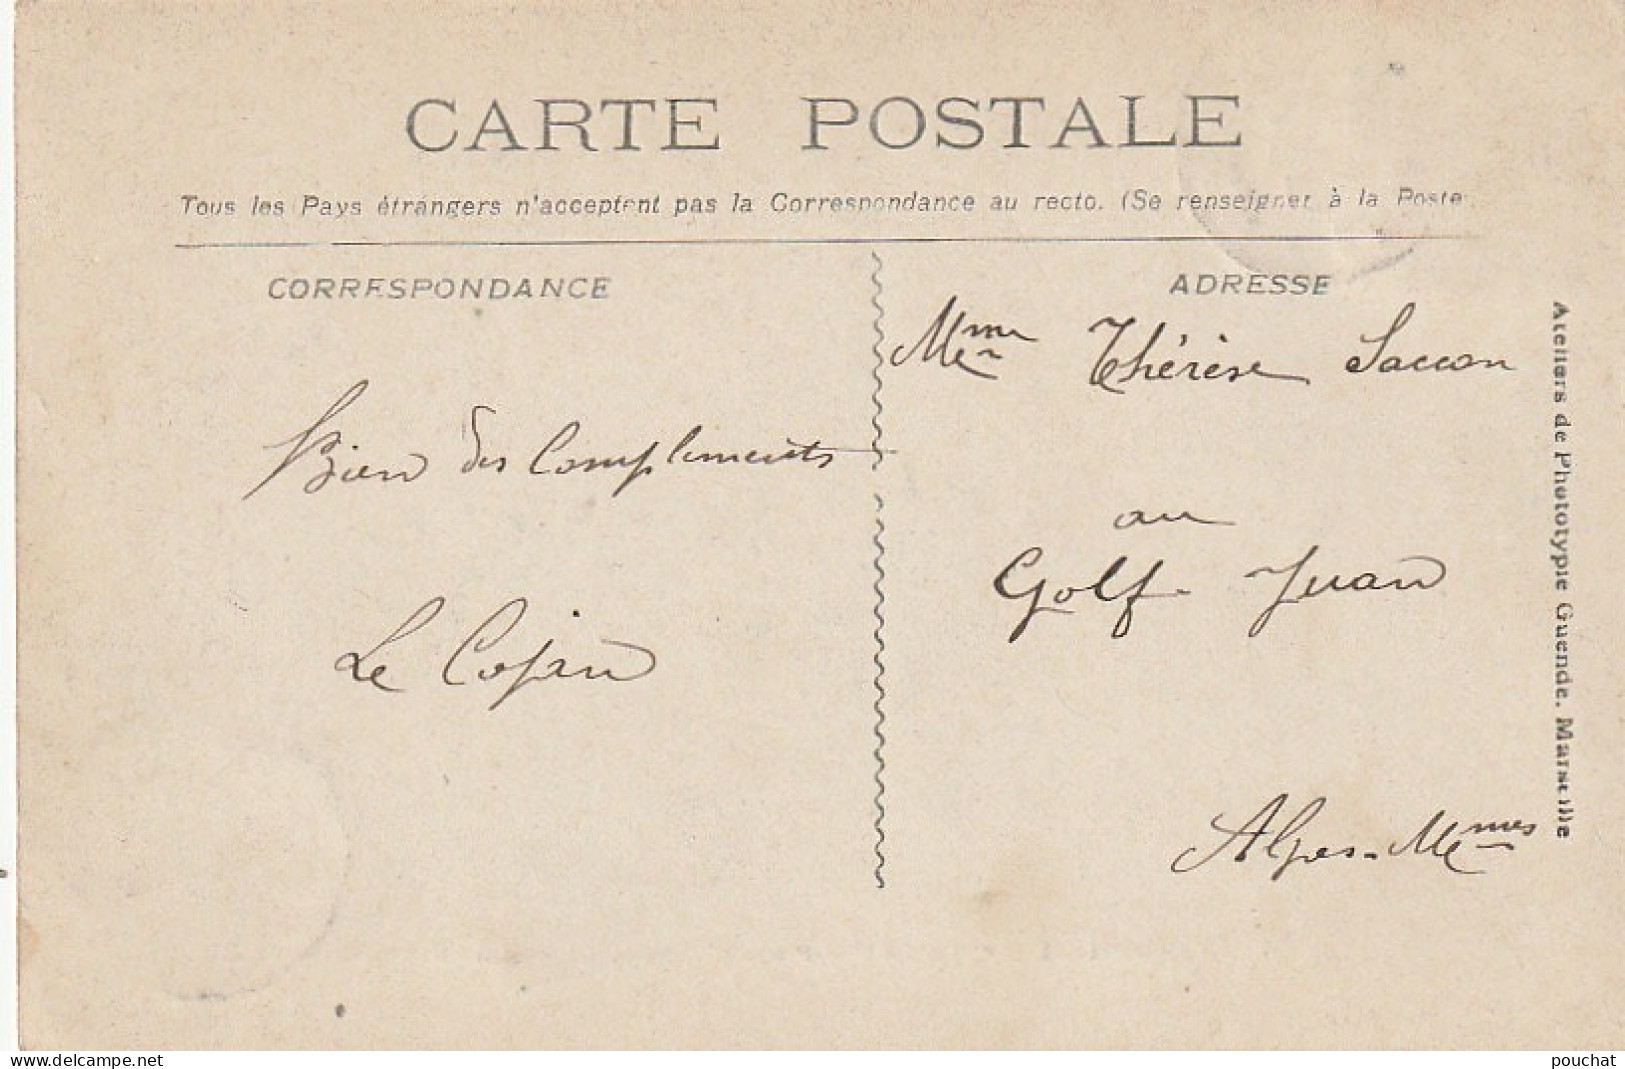 CARTE POSTALE
Tous les Pays étrangers n'acceptent pas la Correspondance au recto. (Se renseigner à la Poste
CORRESPONDANCE
Bien des Compliments
Le Cojan
ADRESSE
Mme Thérèse Saccon
au
Golf Juan
Alpes-Mmes
Ateliers de Phototypie Guende. Marseille
delcampe.net
pouchat